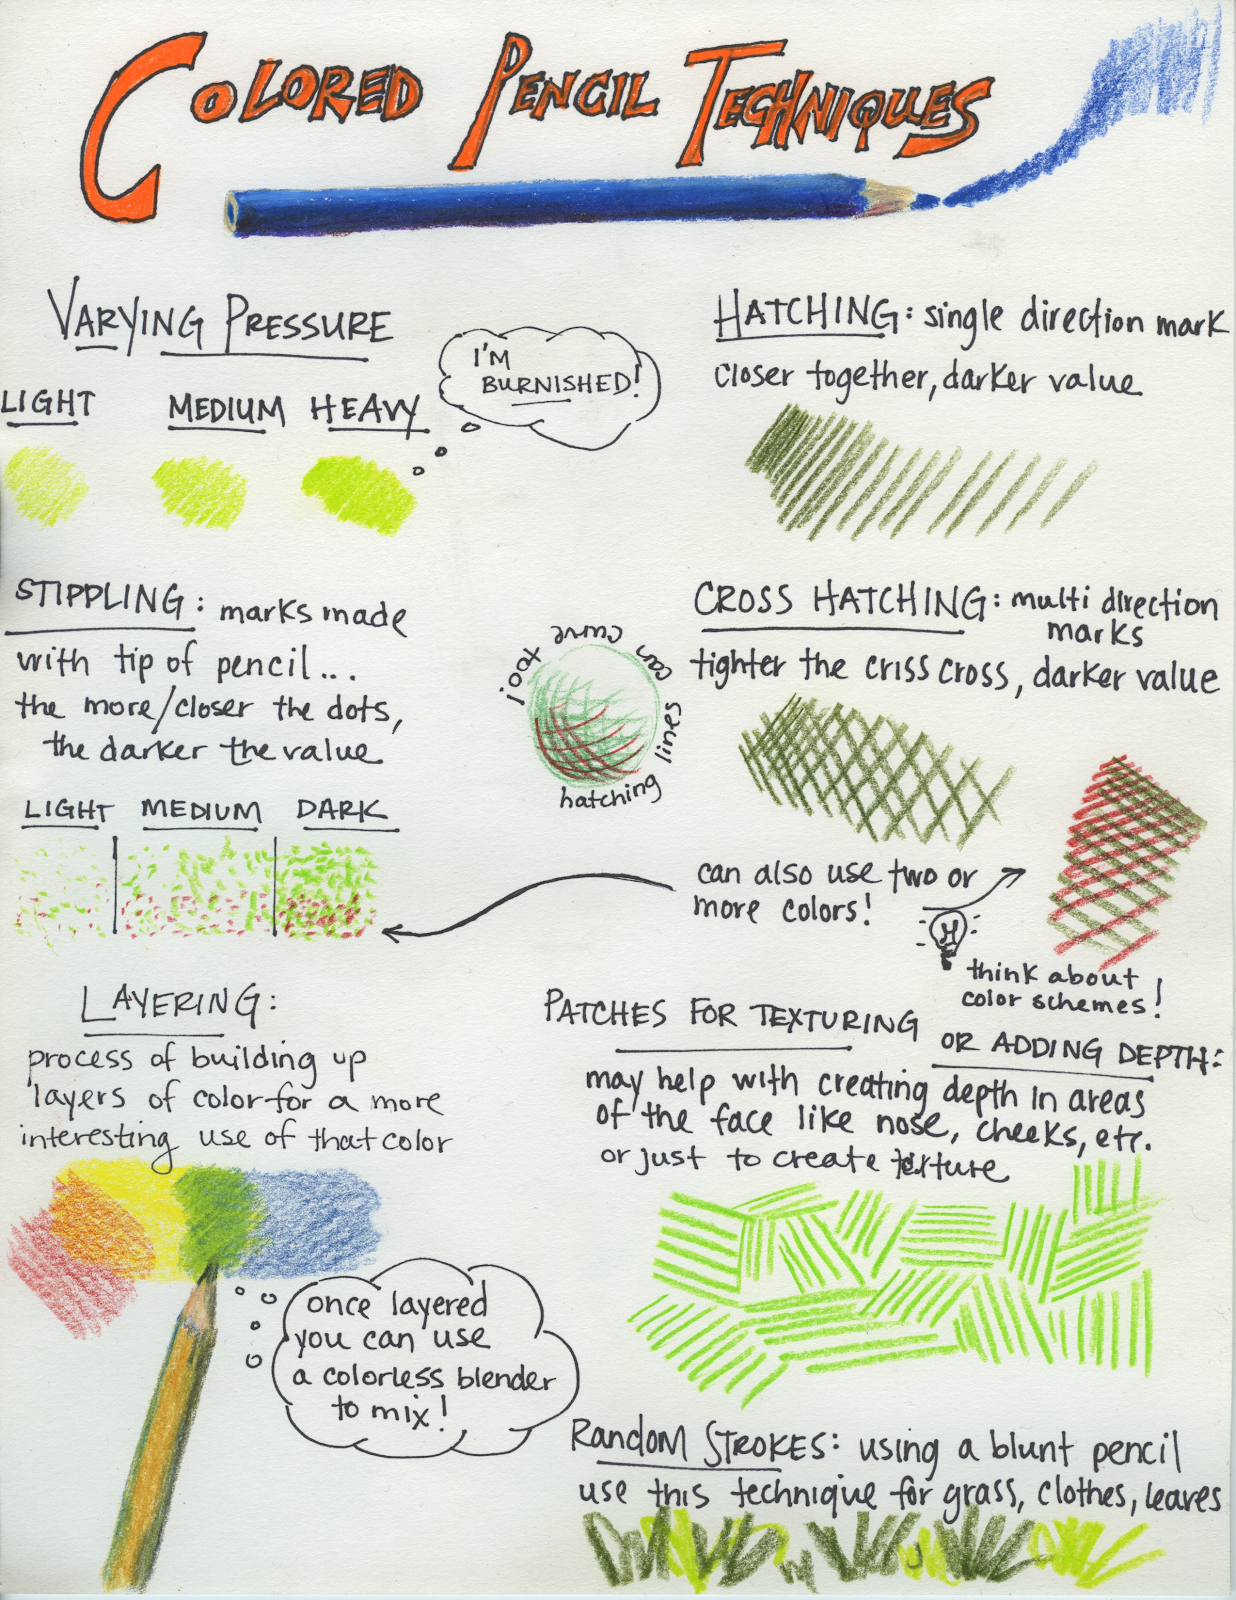 COLORED PENCIL TECHNIQUES
VARYING PRESSURE
LIGHT MEDIUM HEAVY
I'M
BURNISHED!
HATCHING: single direction mark
closer together, darker value
STIPPLING: marks made
with tip of pencil...
the more/closer the dots,
the darker the value
LIGHT MEDIUM DARK
hatching lines can curve too!
CROSS HATCHING: multi direction
marks
tighter the criss cross, darker value
can also use two or
more colors!
H
think about
color schemes!
LAYERING:
process of building up
layers of color for a more
interesting use of that color
once layered
you can use
a colorless blender
to mix!
PATCHES FOR TEXTURING
OR ADDING DEPTH:
may help with creating depth in areas
of the face like nose, cheeks, etc.
or just to create texture
RANDOM STROKES: using a blunt pencil
use this technique for grass, clothes, leaves